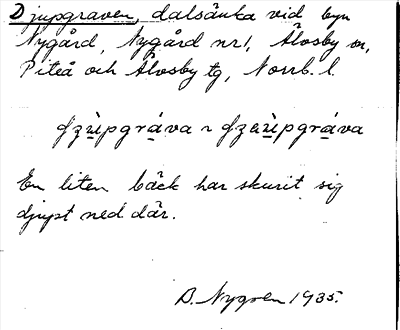 Djupgraven, dalsänka vid byn
Nygård, Nygård nr 1, Älvsby sn,
Piteå och Älvsby tg, Norrb. l.
En liten bäck har skurit sig
djupt ned där.
B. Nygren 1935.